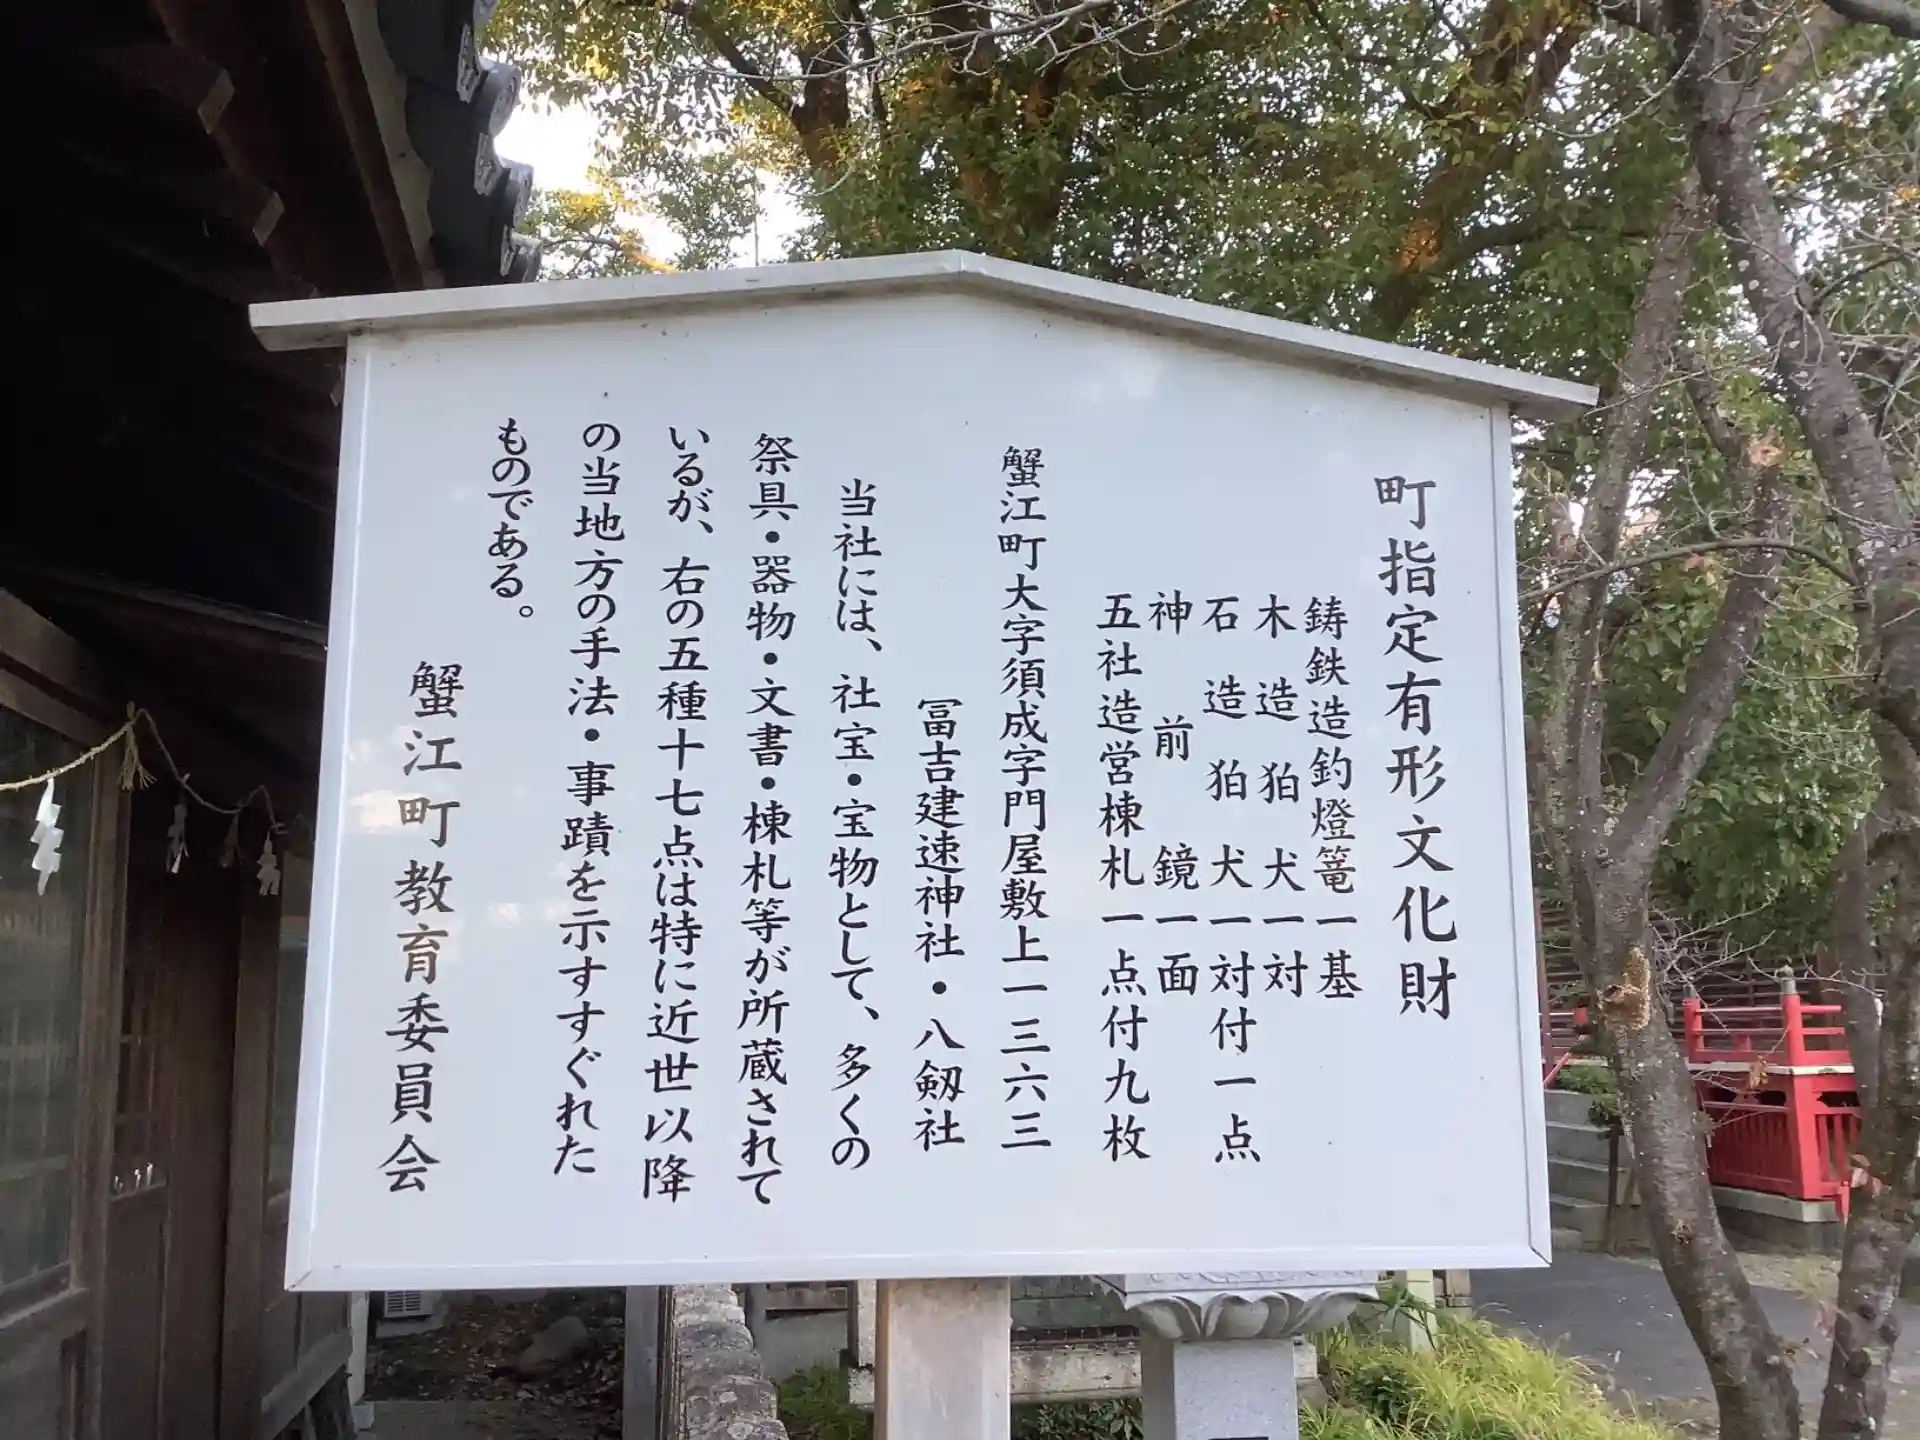 町指定有形文化財
鋳鉄造釣燈篭一基
木造狛犬一対
石造狛犬一対付一点
神前鏡一面
五社造営棟札一点付九枚
蟹江町大字須成字門屋敷上一三六三
冨吉建速神社・八剱社
当社には、社宝・宝物として、多くの
祭具・器物・文書・棟札等が所蔵されて
いるが、右の五種十七点は特に近世以降
の当地方の手法・事蹟を示すすぐれた
ものである。
蟹江町教育委員会